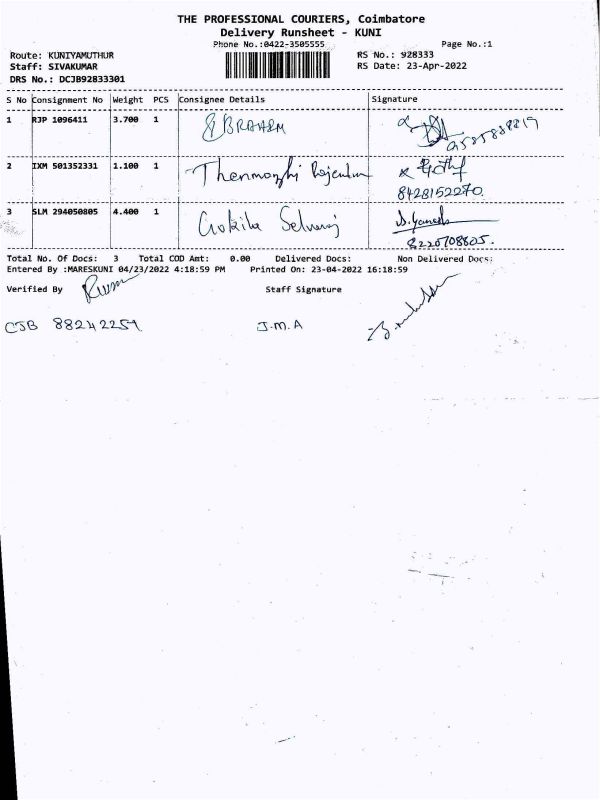 THE PROFESSIONAL COURIERS, Coimbatore
Delivery Runsheet - KUNI
Phone No.:0422-3505555 Page No.:1
Route: KUNIYAMUTHUR RS No.: 928333
Staff: SIVAKUMAR RS Date: 23-Apr-2022
DRS No.: DCJB92833301
S No Consignment No Weight PCS Consignee Details Signature
1 RJP 1096411 3.700 1
2 IXM 501352331 1.100 1 Thenmozhi
8428152270.
3 SLM 294050805 4.400 1 Gokila Selvaraj
8220708805.
Total No. Of Docs: 3 Total COD Amt: 0.00 Delivered Docs: Non Delivered Docs:
Entered By :MARESKUNI 04/23/2022 4:18:59 PM Printed On: 23-04-2022 16:18:59
Verified By Staff Signature
CJB 88242259 J.M.A